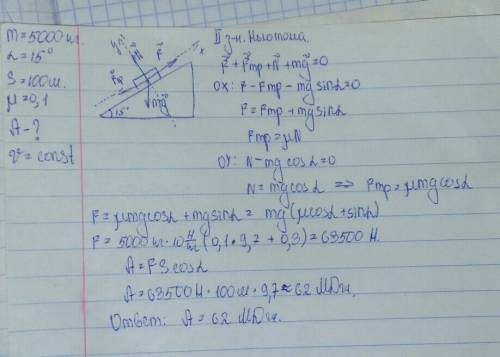 m=5000 кг.
α=15°
S=100 м.
μ=0,1
A-?
υ=const
y
N
F
x
Fтр
mg
15°
II з-н. Ньютона.
F+Fтр+N+mg=0
OX: F-Fтр-mg sinα=0
F=Fтр+mg sinα
Fтр=μN
OY: N-mg cosα=0
N=mg cosα => Fтр=μmg cosα
F=μmg cosα+mg sinα= mg(μcosα+sinα)
F=5000 кг·10 Н/кг (0,1·9,7+0,3)=63500 Н.
A=FS cosα
A=63500Н·100м·9,7≈62 МДж.
Ответ: A=62 МДж.